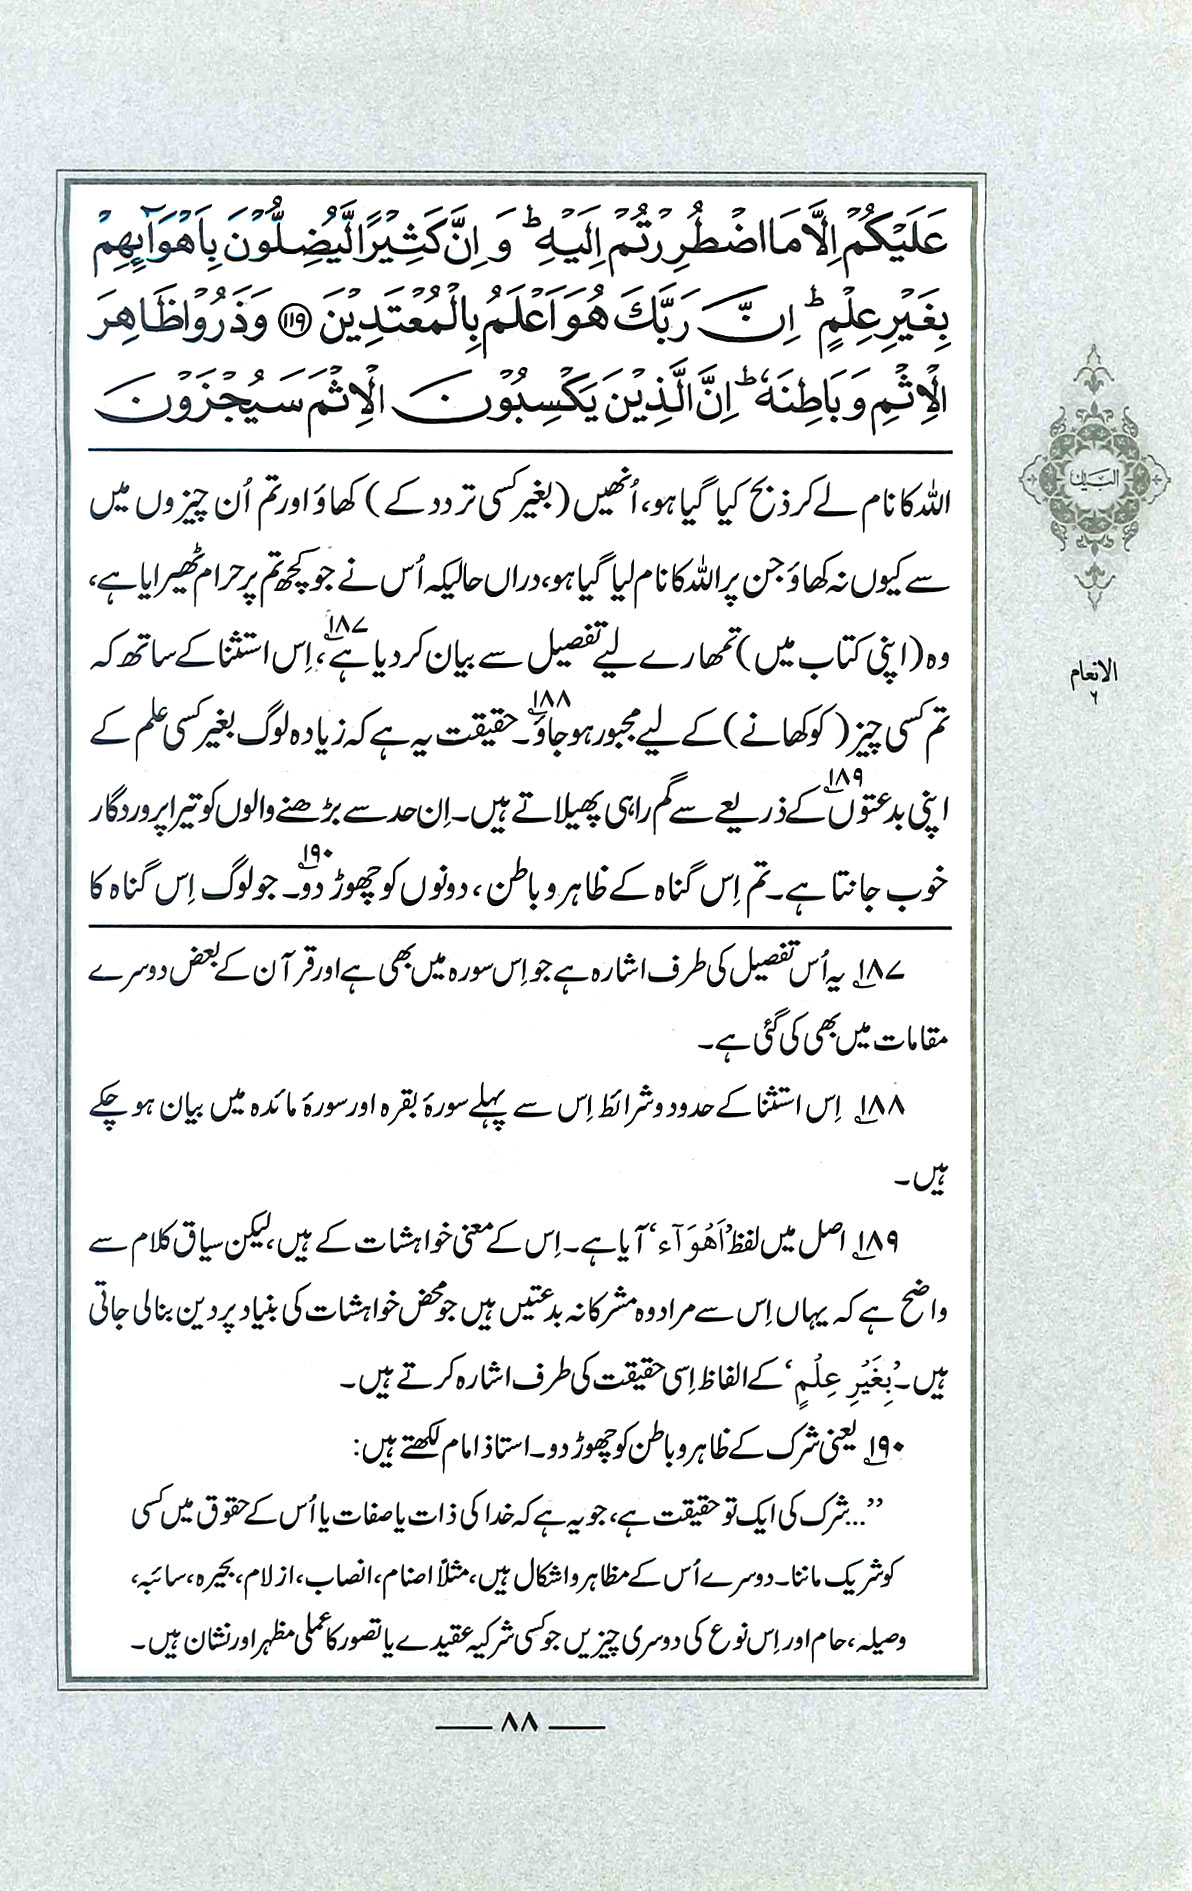 عَلَيْكُمْ اِلَّا مَا اضْطُرِرْتُمْ اِلَيْهِ ؕ وَ اِنَّ كَثِيْرًا لَّيُضِلُّوْنَ بِاَهْوَآئِهِمْ
بِغَيْرِ عِلْمٍ ؕ اِنَّ رَبَّكَ هُوَ اَعْلَمُ بِالْمُعْتَدِيْنَ ﴿۱۱۹﴾ وَ ذَرُوْا ظَاهِرَ
الْاِثْمِ وَ بَاطِنَهٗ ؕ اِنَّ الَّذِيْنَ يَكْسِبُوْنَ الْاِثْمَ سَيُجْزَوْنَ
اللہ کا نام لے کر ذبح کیا گیا ہو، اُنھیں (بغیر کسی تردد کے) کھاؤ اور تم اُن چیزوں میں
سے کیوں نہ کھاؤ جن پر اللہ کا نام لیا گیا ہو، دراں حالیکہ اُس نے جو کچھ تم پر حرام ٹھیرایا ہے،
وہ (اپنی کتاب میں) تمھارے لیے تفصیل سے بیان کر دیا ہے۱۸۷، اِس استثنا کے ساتھ کہ
تم کسی چیز (کو کھانے) کے لیے مجبور ہو جاؤ۱۸۸۔ حقیقت یہ ہے کہ زیادہ لوگ بغیر کسی علم کے
اپنی بدعتوں۱۸۹ کے ذریعے سے گم راہی پھیلاتے ہیں۔ اِن حد سے بڑھنے والوں کو تیرا پروردگار
خوب جانتا ہے۔ تم اِس گناہ کے ظاہر و باطن، دونوں کو چھوڑ دو۱۹۰۔ جو لوگ اِس گناہ کا
۱۸۷ یہ اُس تفصیل کی طرف اشارہ ہے جو اِس سورہ میں بھی ہے اور قرآن کے بعض دوسرے
مقامات میں بھی کی گئی ہے۔
۱۸۸ اِس استثنا کے حدود و شرائط اِس سے پہلے سورۂ بقرہ اور سورۂ مائدہ میں بیان ہو چکے
ہیں۔
۱۸۹ اصل میں لفظ ’اَهْوَآء‘ آیا ہے۔ اِس کے معنی خواہشات کے ہیں، لیکن سیاق کلام سے
واضح ہے کہ یہاں اِس سے مراد وہ مشرکانہ بدعتیں ہیں جو محض خواہشات کی بنیاد پر دین بنا لی جاتی
ہیں۔ ’بِغَيْرِ عِلْمٍ‘ کے الفاظ اِسی حقیقت کی طرف اشارہ کرتے ہیں۔
۱۹۰ یعنی شرک کے ظاہر و باطن کو چھوڑ دو۔ استاذ امام لکھتے ہیں:
’’...شرک کی ایک تو حقیقت ہے، جو یہ ہے کہ خدا کی ذات یا صفات یا اُس کے حقوق میں کسی
کو شریک ماننا۔ دوسرے اُس کے مظاہر و اشکال ہیں، مثلاً اصنام، انصاب، ازلام، بحیرہ، سائبہ،
وصیلہ، حام اور اِس نوع کی دوسری چیزیں جو کسی شرکیہ عقیدے یا تصور کا عملی مظہر اور نشان ہیں۔
البیان
الانعام
۶
۸۸